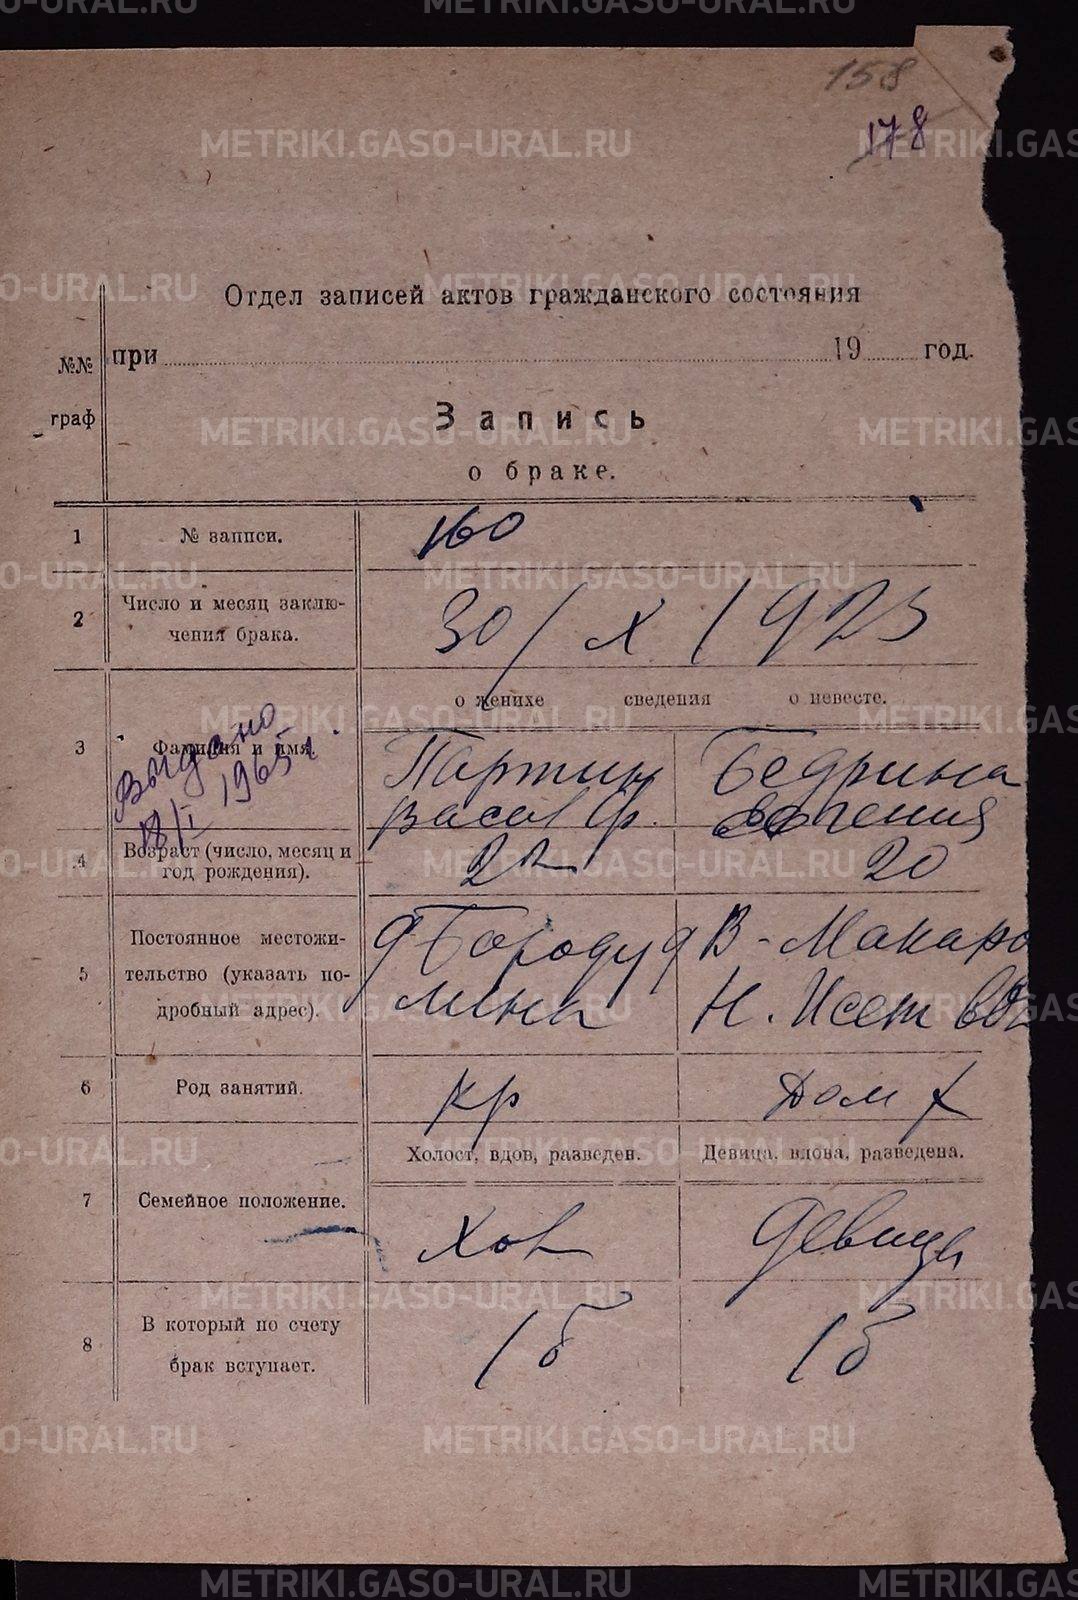 158
178
Отдел записей актов гражданского состояния
№№ граф
при 19 год.
Запись
о браке.
1 № записи. 160
2 Число и месяц заклю-
чения брака. 30/X/1923
о женихе сведения о невесте.
3 Фамилия и имя. Партин Бедрина
Васил Ф.
Выдано
18/I 1965 г.
4 Возраст (число, месяц и
год рождения). 22 20
5 Постоянное местожи-
тельство (указать по-
дробный адрес).
д В-Макаро
Н. Исет
6 Род занятий. кр Дом х
Холост, вдов, разведен. Девица, вдова, разведена.
7 Семейное положение. Хол Девица
8 В который по счету
брак вступает. 1б 1б
METRIKI.GASO-URAL.RU